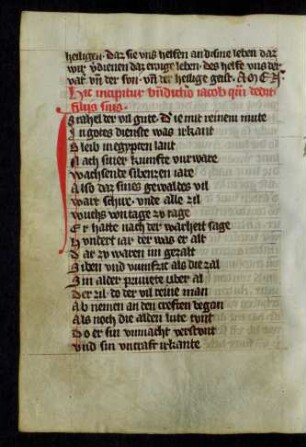 heiligen. Daz sie vns helfen an disme leben daz
wir v̄dienen daz ewige leben. des helfe vns der
vat̄ vn̄ der svn. vn̄ der heilige geist. AMEN.
Hic incipitur bn̄dictio iacob
filiis suis.
Israhel der vil gute. Die mit reinem mute
In gotes dienste was irkant
Bleib in egypten lant
Nach siner kumfte vurware
Wachsende sibenzen iare
Also daz sines gewaldes vil
Wart schire. vnde alle zil
Wuchs von tage zv tage
Er hatte nach der warheit sage
Hvndert iar der was er alt
Dar zv waren im gezalt
Siben vnd vumfzic als die zal
Im alder pruuete vber al
Der zil. do der vil reine man
Ab nemen an den creften began
Als noch die alden lute tvnt
Do er sin vnmacht verstvnt
Vnd sin vncraft irkante